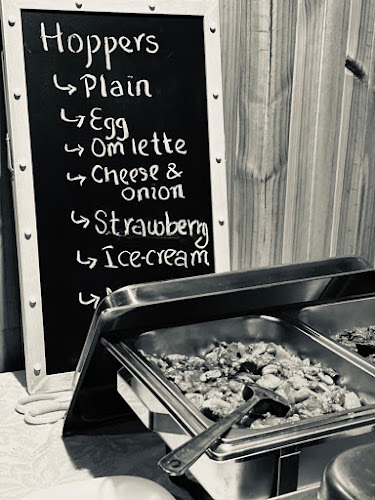 Hoppers
↳ Plain
↳ Egg
↳ Omlette
↳ Cheese &
onion
↳ Strawberry
↳ Ice-cream